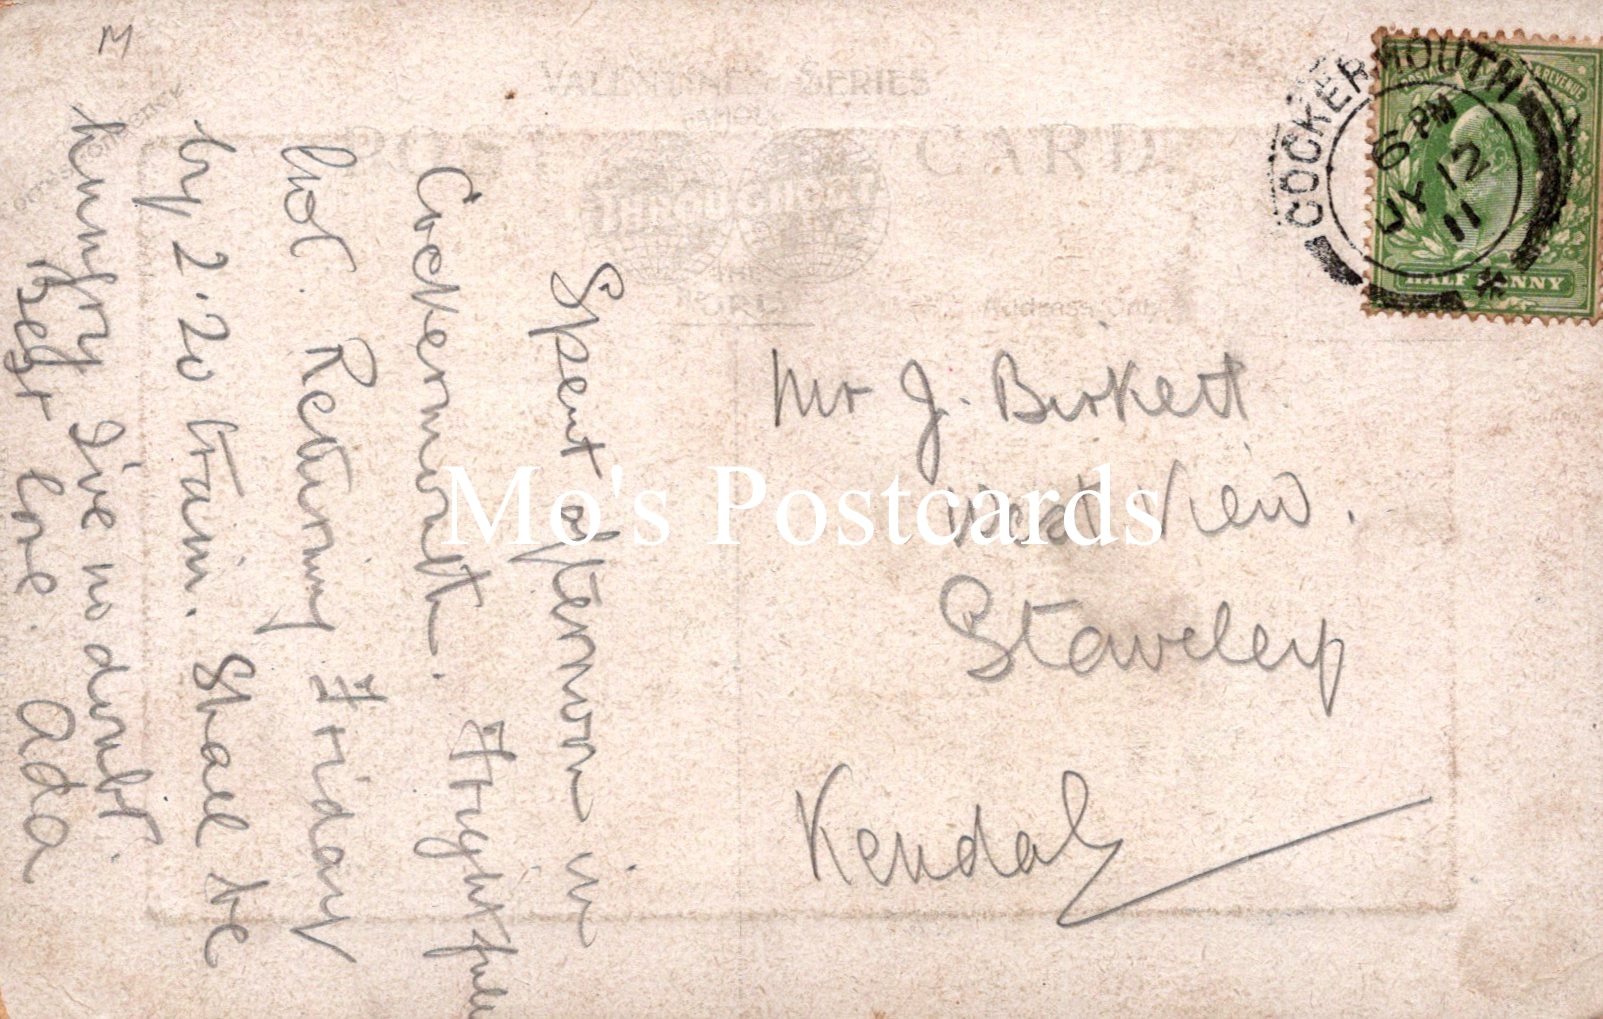 M
VALENTINE'S SERIES
FAMOUS
POST CARD
THROUGHOUT
THE
WORLD
Address Only
COCKERMOUTH
6 PM
JY 12
11
POSTAGE REVENUE
HALF PENNY
Spent afternoon in
Cockermouth. Frightfully
hot. Returning Friday
by 2.20 train. Shall be
hungry I've no doubt.
Best love. Ada
Mr J. Birkett
West View.
Staveley
Kendal
Mo's Postcards